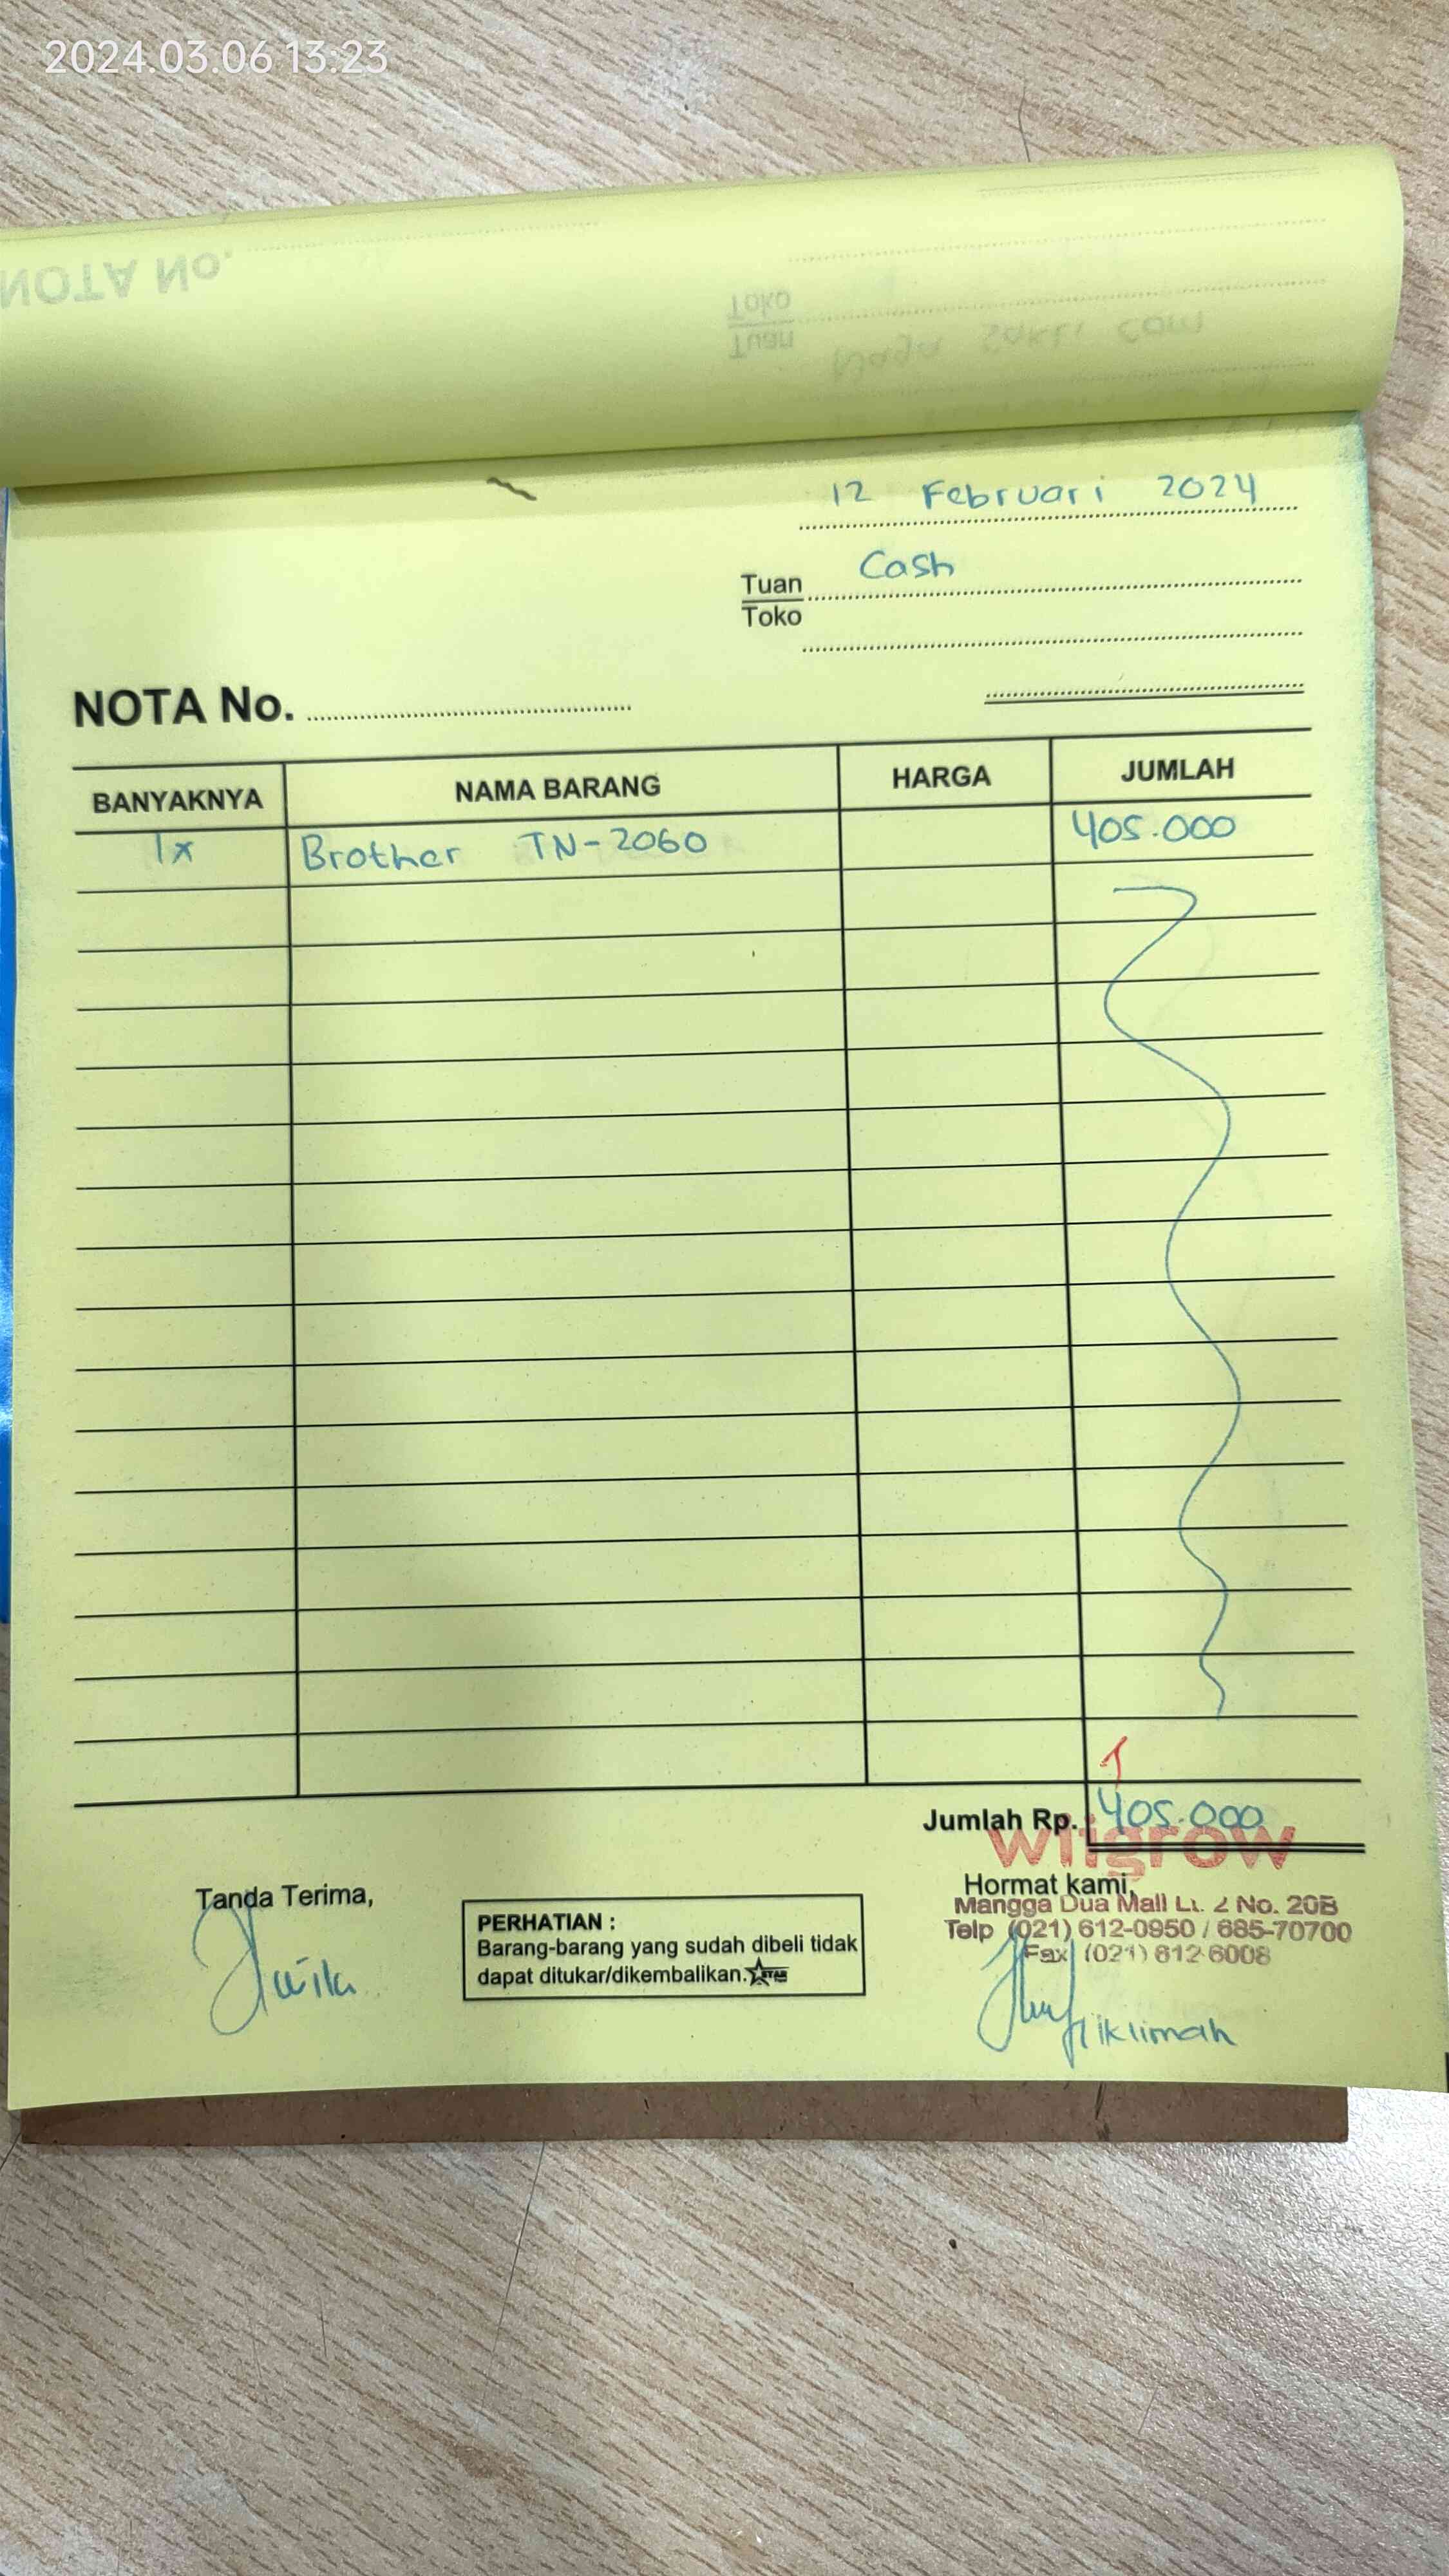 2024.03.06 13:23
NOTA No.
Toko
Tuan
Naga Sakti Com
12 Februari 2024
Tuan Cash
Toko
NOTA No.
BANYAKNYA NAMA BARANG HARGA JUMLAH
1x Brother TN-2060 405.000
Jumlah Rp. 405.000
wiigrow
Tanda Terima,
Hormat kami,
Mangga Dua Mall Lt. 2 No. 20B
Telp (021) 612-0950 / 685-70700
Fax (021) 612 6008
PERHATIAN :
Barang-barang yang sudah dibeli tidak
dapat ditukar/dikembalikan.
iklimah